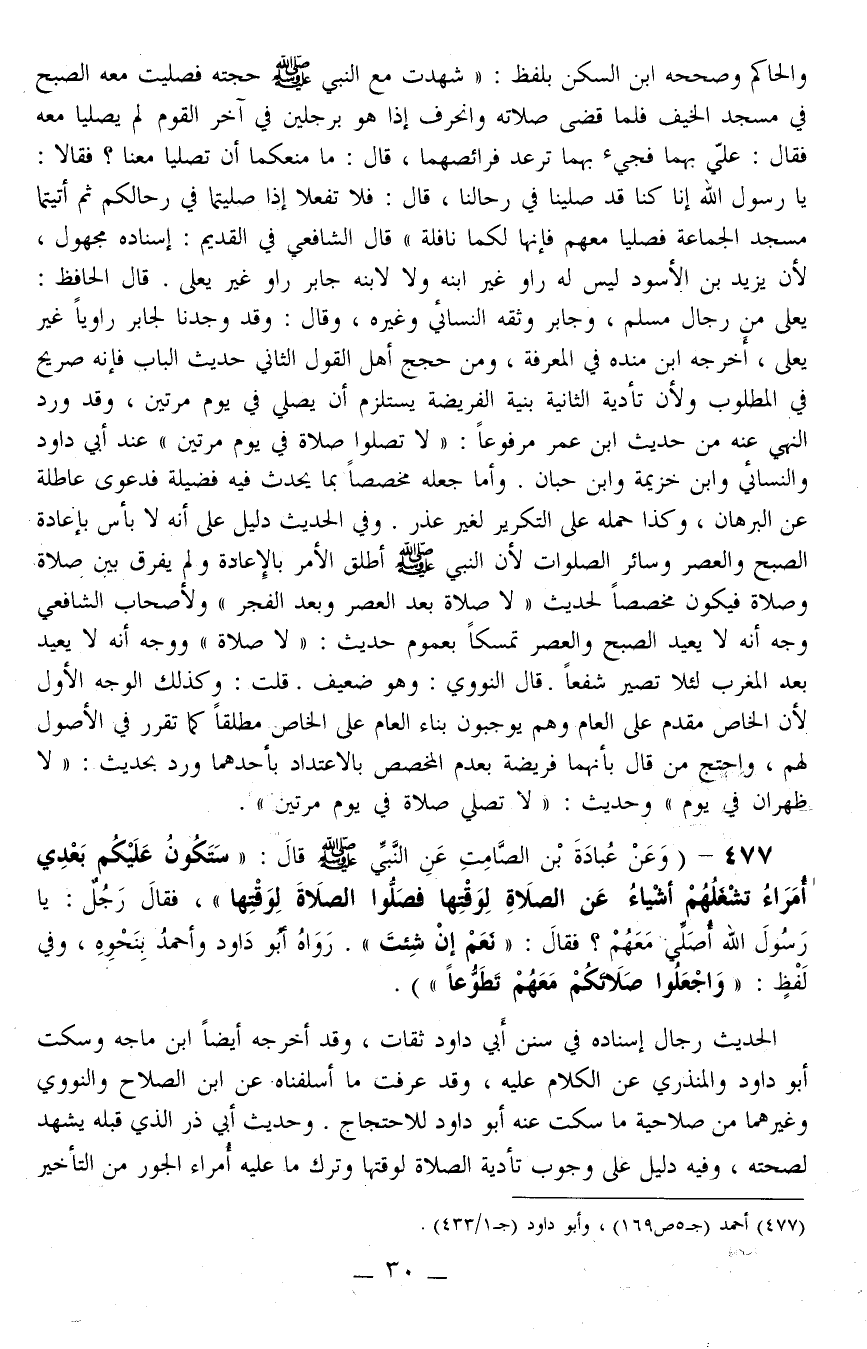 والحاكم وصححه ابن السكن بلفظ : « شهدت مع النبي ﷺ حجته فصليت معه الصبح
في مسجد الخيف فلما قضى صلاته وانحرف إذا هو برجلين في آخر القوم لم يصليا معه
فقال : عليّ بهما فجيء بهما ترعد فرائصهما ، قال : ما منعكما أن تصليا معنا ؟ فقالا :
يا رسول الله إنا كنا قد صلينا في رحالنا ، قال : فلا تفعلا إذا صليتما في رحالكم ثم أتيتما
مسجد الجماعة فصليا معهم فإنها لكما نافلة » قال الشافعي في القديم : إسناده مجهول ،
لأن يزيد بن الأسود ليس له راو غير ابنه ولا لابنه جابر راو غير يعلى . قال الحافظ :
يعلى من رجال مسلم ، وجابر وثقه النسائي وغيره ، وقال : وقد وجدنا لجابر راوياً غير
يعلى ، أخرجه ابن منده في المعرفة ، ومن حجج أهل القول الثاني حديث الباب فإنه صريح
في المطلوب ولأن تأدية الثانية بنية الفريضة يستلزم أن يصلي في يوم مرتين ، وقد ورد
النهي عنه من حديث ابن عمر مرفوعاً : « لا تصلوا صلاة في يوم مرتين » عند أبي داود
والنسائي وابن خزيمة وابن حبان . وأما جعله مخصصاً بما يحدث فيه فضيلة فدعوى عاطلة
عن البرهان ، وكذا حمله على التكرير لغير عذر . وفي الحديث دليل على أنه لا بأس بإعادة
الصبح والعصر وسائر الصلوات لأن النبي ﷺ أطلق الأمر بالإعادة ولم يفرق بين صلاة
وصلاة فيكون مخصصاً لحديث « لا صلاة بعد العصر وبعد الفجر » ولأصحاب الشافعي
وجه أنه لا يعيد الصبح والعصر تمسكاً بعموم حديث : « لا صلاة » ووجه أنه لا يعيد
بعد المغرب لئلا تصير شفعاً . قال النووي : وهو ضعيف . قلت : وكذلك الوجه الأول
لأن الخاص مقدم على العام وهم يوجبون بناء العام على الخاص مطلقاً كما تقرر في الأصول
لهم ، واحتج من قال بأنهما فريضة بعدم المخصص بالاعتداد بأحدهما ورد بحديث : « لا
ظهران في يوم » وحديث : « لا تصلي صلاة في يوم مرتين » .
٤٧٧ – ( وَعَنْ عُبادَةَ بْنِ الصَّامِتِ عَنِ النَّبِيِّ ﷺ قالَ : « سَتَكُونُ عَلَيْكُم بَعْدِي
أُمَرَاءُ تشْغَلُهُمْ أشْياءُ عَن الصلاةِ لِوَقْتِها فصَلُّوا الصلاةَ لِوَقْتِها » ، فقالَ رَجُلٌ : يا
رَسُولَ الله أُصَلِّي مَعَهُمْ ؟ فقالَ : « نَعَمْ إنْ شِئتَ » . رَوَاهُ أبُو دَاود وأحمدُ بِنَحْوِهِ ، وفي
لَفْظٍ : « وَاجْعَلُوا صَلَاتَكُمْ مَعَهُمْ تَطَوُّعاً » ) .
الحديث رجال إسناده في سنن أبي داود ثقات ، وقد أخرجه أيضاً ابن ماجه وسكت
أبو داود والمنذري عن الكلام عليه ، وقد عرفت ما أسلفناه عن ابن الصلاح والنووي
وغيرهما من صلاحية ما سكت عنه أبو داود للاحتجاج . وحديث أبي ذر الذي قبله يشهد
لصحته ، وفيه دليل على وجوب تأدية الصلاة لوقتها وترك ما عليه أُمراء الجور من التأخير
(٤٧٧) أحمد (جـ٥ص١٦٩) ، وأبو داود (جـ٤٣٣/١) .
– ٣٠ –